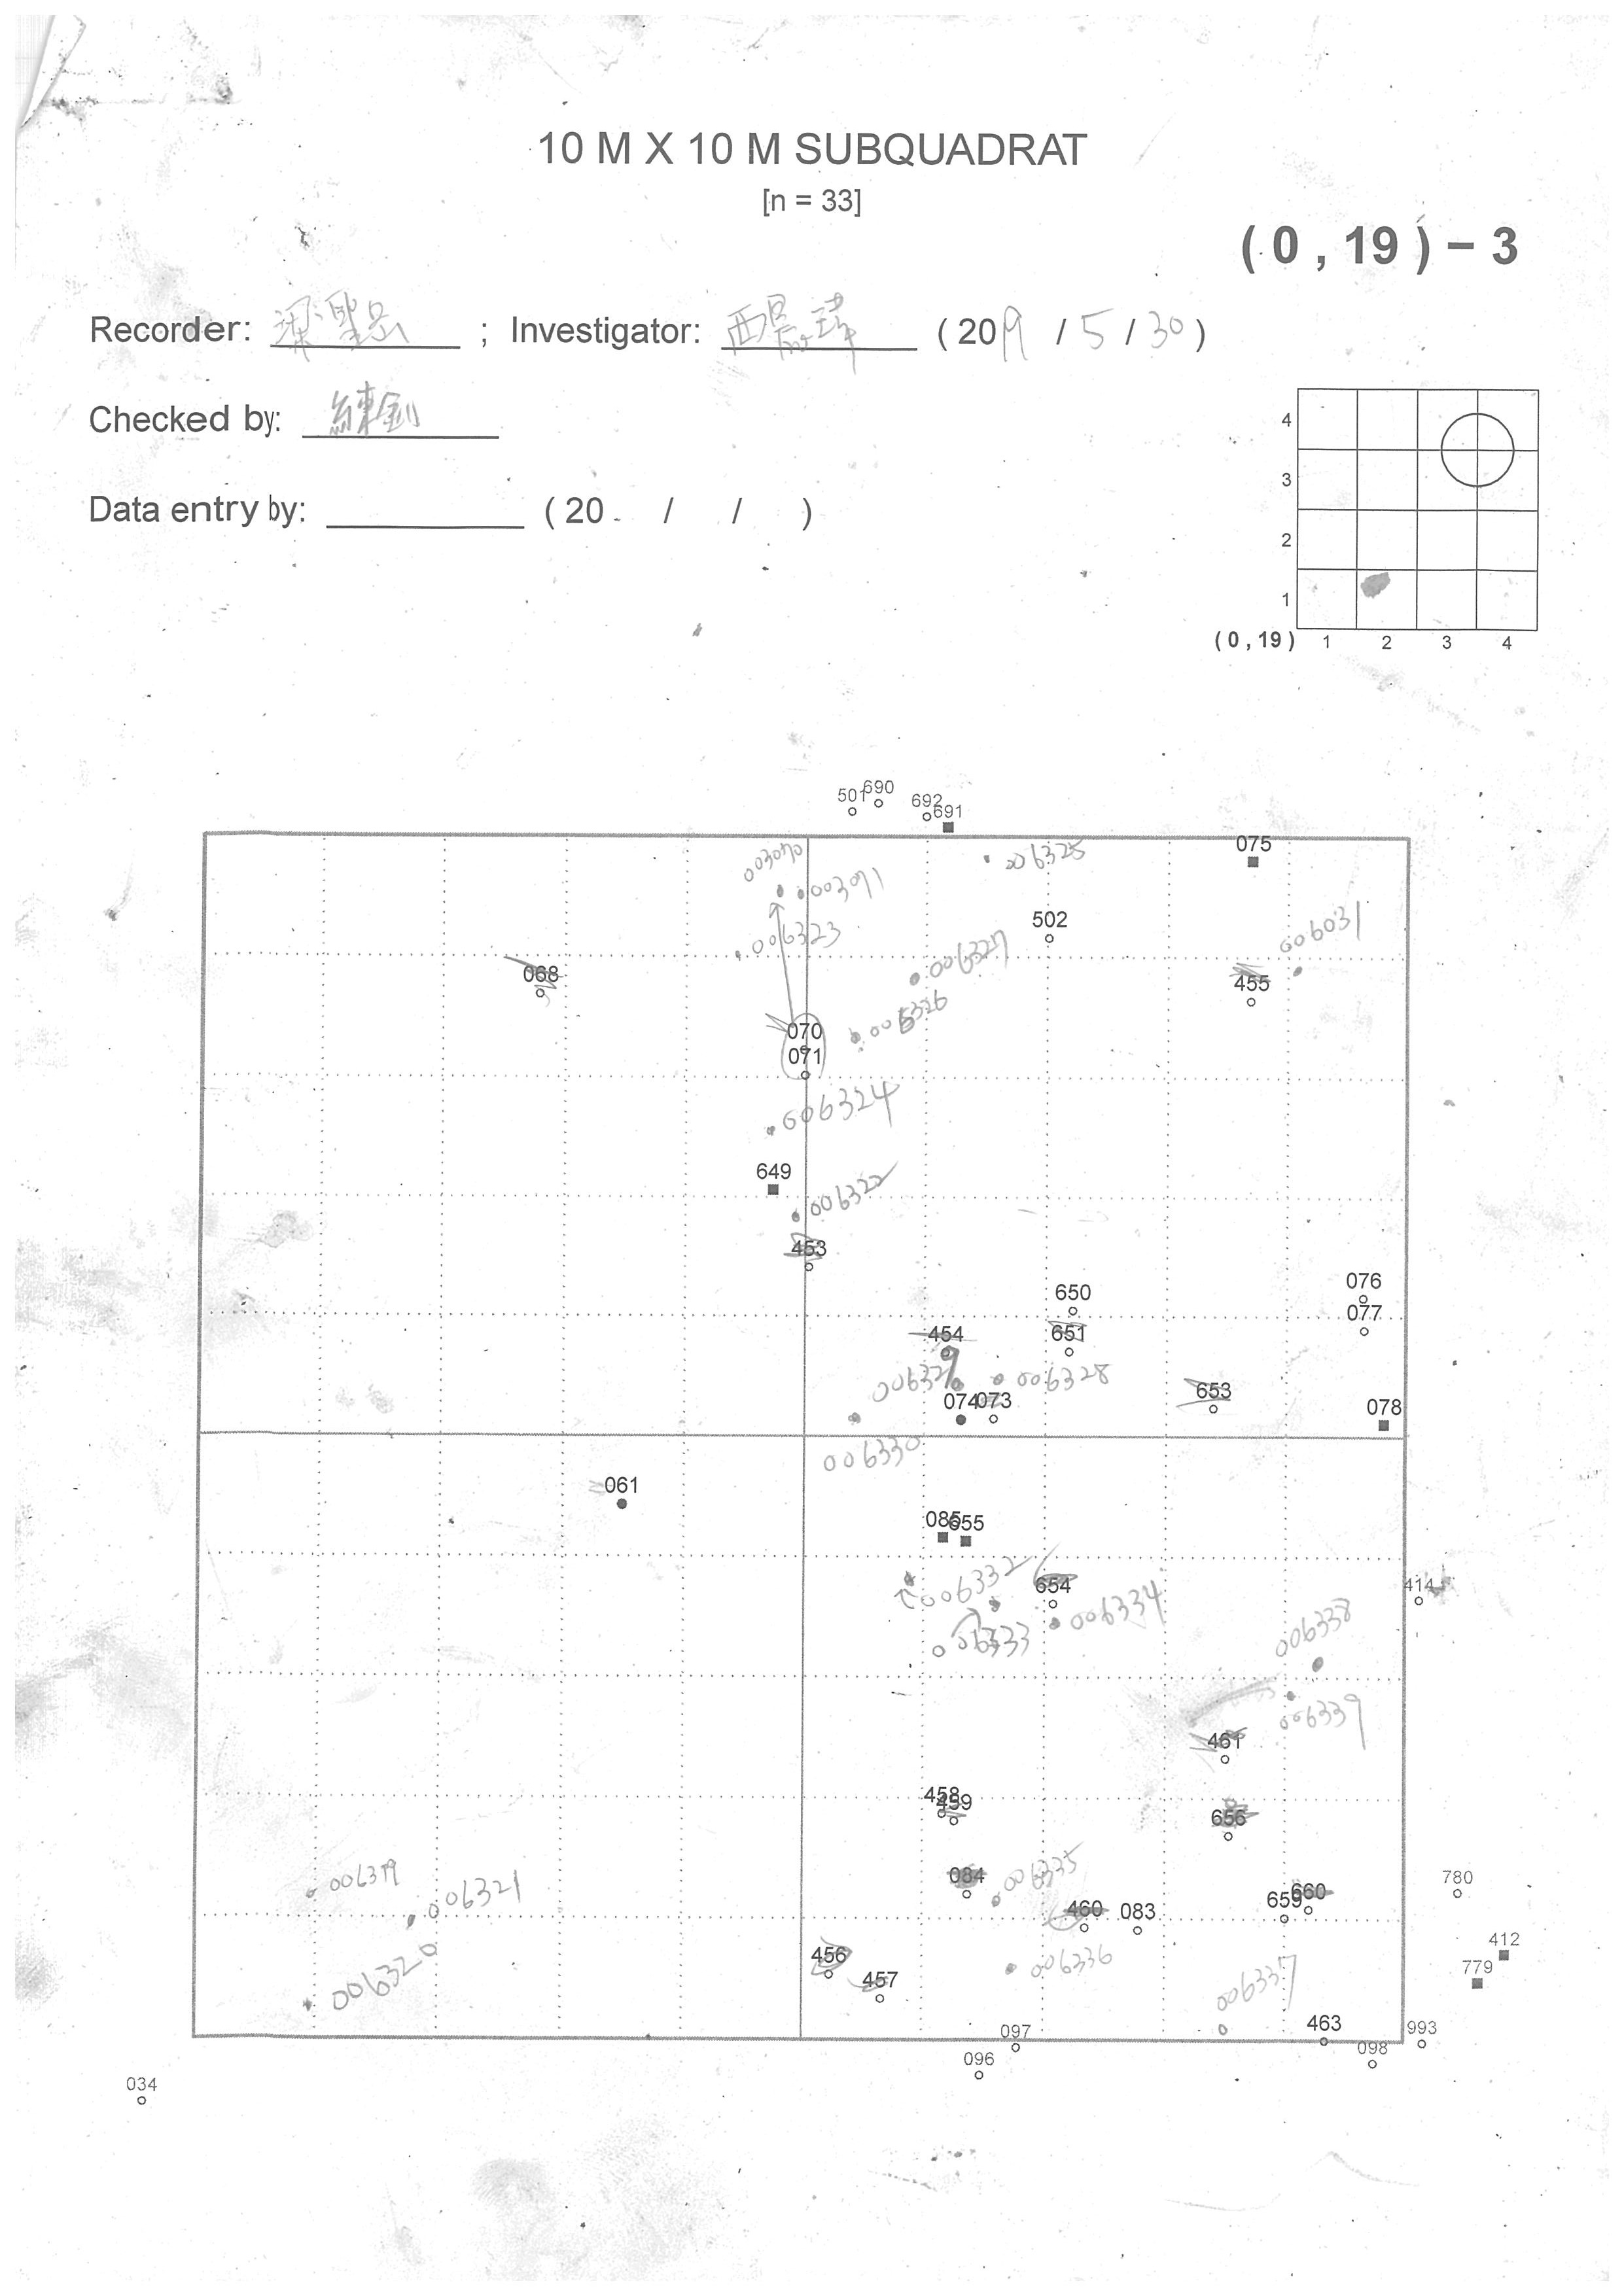 10 M X 10 M SUBQUADRAT
[n = 33]
( 0 , 19 ) – 3
Recorder: 梁聖岳 ; Investigator: ( 2019 / 5 / 30 )
Checked by: 練釧
Data entry by: ( 20 / / )
4
3
2
1
( 0 , 19 ) 1 2 3 4
501 690 692 691
003070 006325 075
003071
502 006031
006323 006327
068 455
006326
070
071
006324
649
006322
453
076
650 077
454 651
006329 006328
653
074 073 078
006330
061
085 655
006332 654 414
006334
006333 006338
006339
461
458
459 656
084 006335 780
006321 660
460 083 659
412
456 006336 779
457 006320
006337
097 463 993
096 098
034